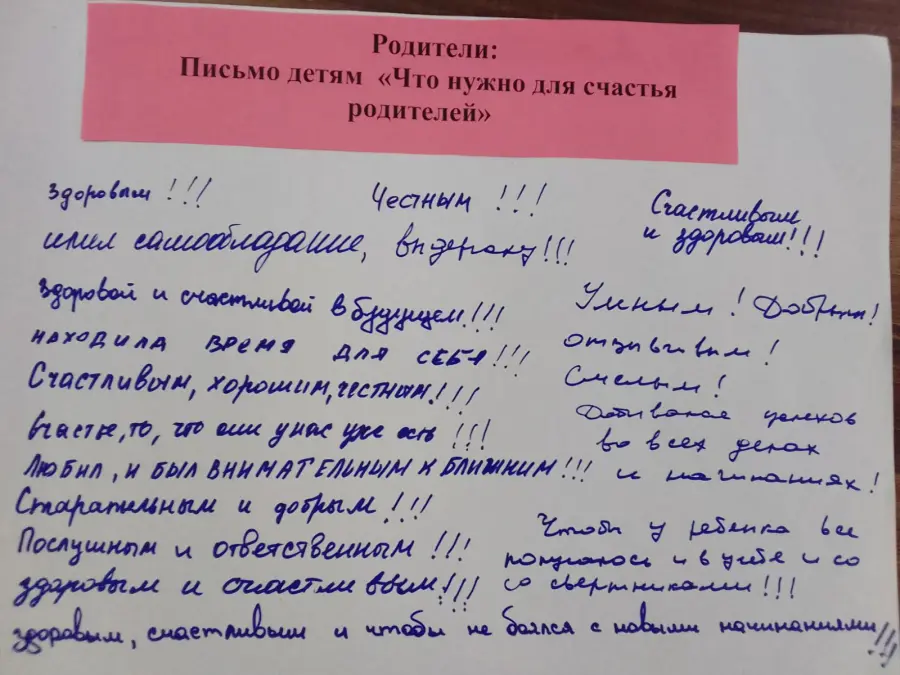 Родители:
Письмо детям «Что нужно для счастья
родителей»
Здоровым!!!
Честным!!!
Счастливым
и здоровым!!!
имел самообладание, выдержку!!!
Здоровой и счастливой в будущем!!!
находила время для себя!!!
Счастливым, хорошим, честным!!!
счастье, то, что они у нас уже есть!!!
Любил, и был внимательным к ближним!!!
Старательным и добрым!!!
Послушным и ответственным!!!
здоровым и счастливым!!!
Умным! Добрым!
отзывчивым!
Смелым!
успехов
во всех делах
и начинаниях!
Чтобы у ребенка все
получалось и в учебе и со
со сверстниками!!!
здоровым, счастливым и чтобы не боялся с новыми начинаниями!!!